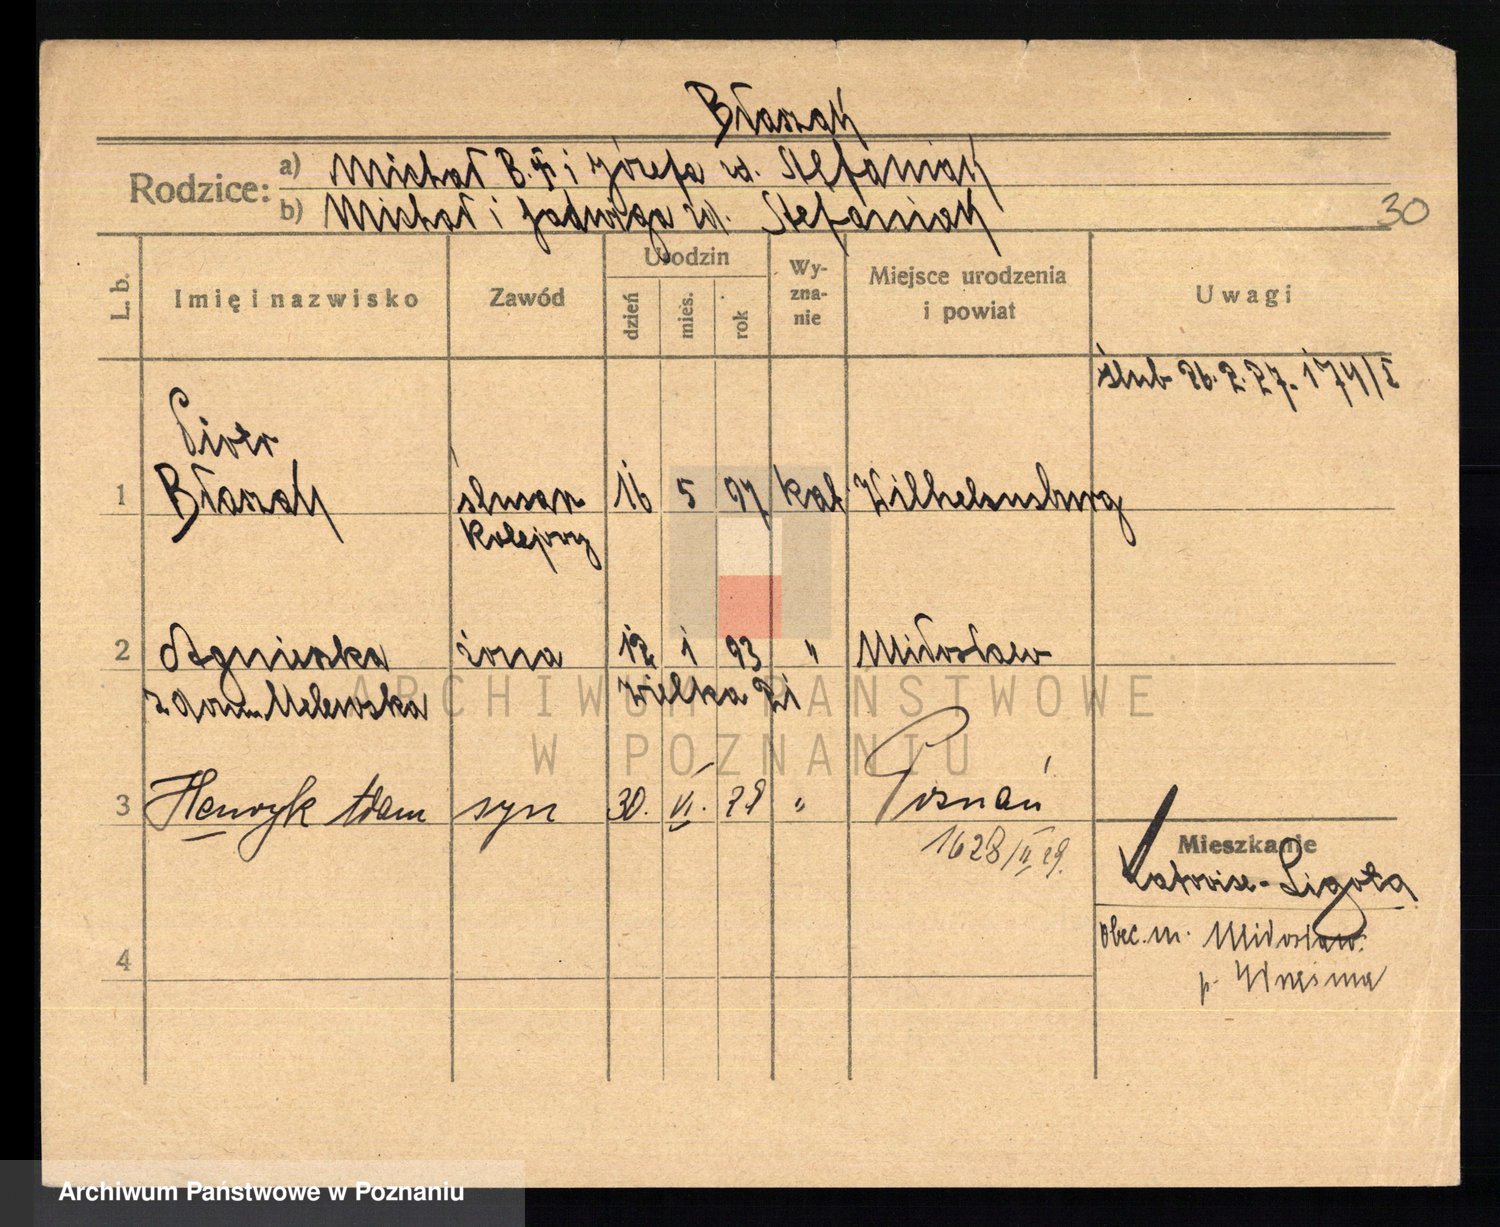 Błaszak
Rodzice:
a) Michał B. i Józefa zd. Stefaniak
b) Michał i Jadwiga zd. Stefaniak
30
L. b.
Imię i nazwisko
Zawód
Urodzin
dzień
mies.
rok
Wy-
zna-
nie
Miejsce urodzenia
i powiat
Uwagi
ślub 26. 2. 27. 174/I
Piotr
1 Błaszak ślusarz 16 5 97 kat. Wilhelmsburg
kolejowy
2 Agnieszka żona 12 1 93 " Miłosław
z domu Melewska
ARCHIWUM PAŃSTWOWE
W POZNANIU
3 Henryk Adam syn 30. VI. 29 " Poznań
1628/II 29.
Mieszkanie
Katowice-Ligota
obec. m. Miłosław
p. Września
4
Archiwum Państwowe w Poznaniu